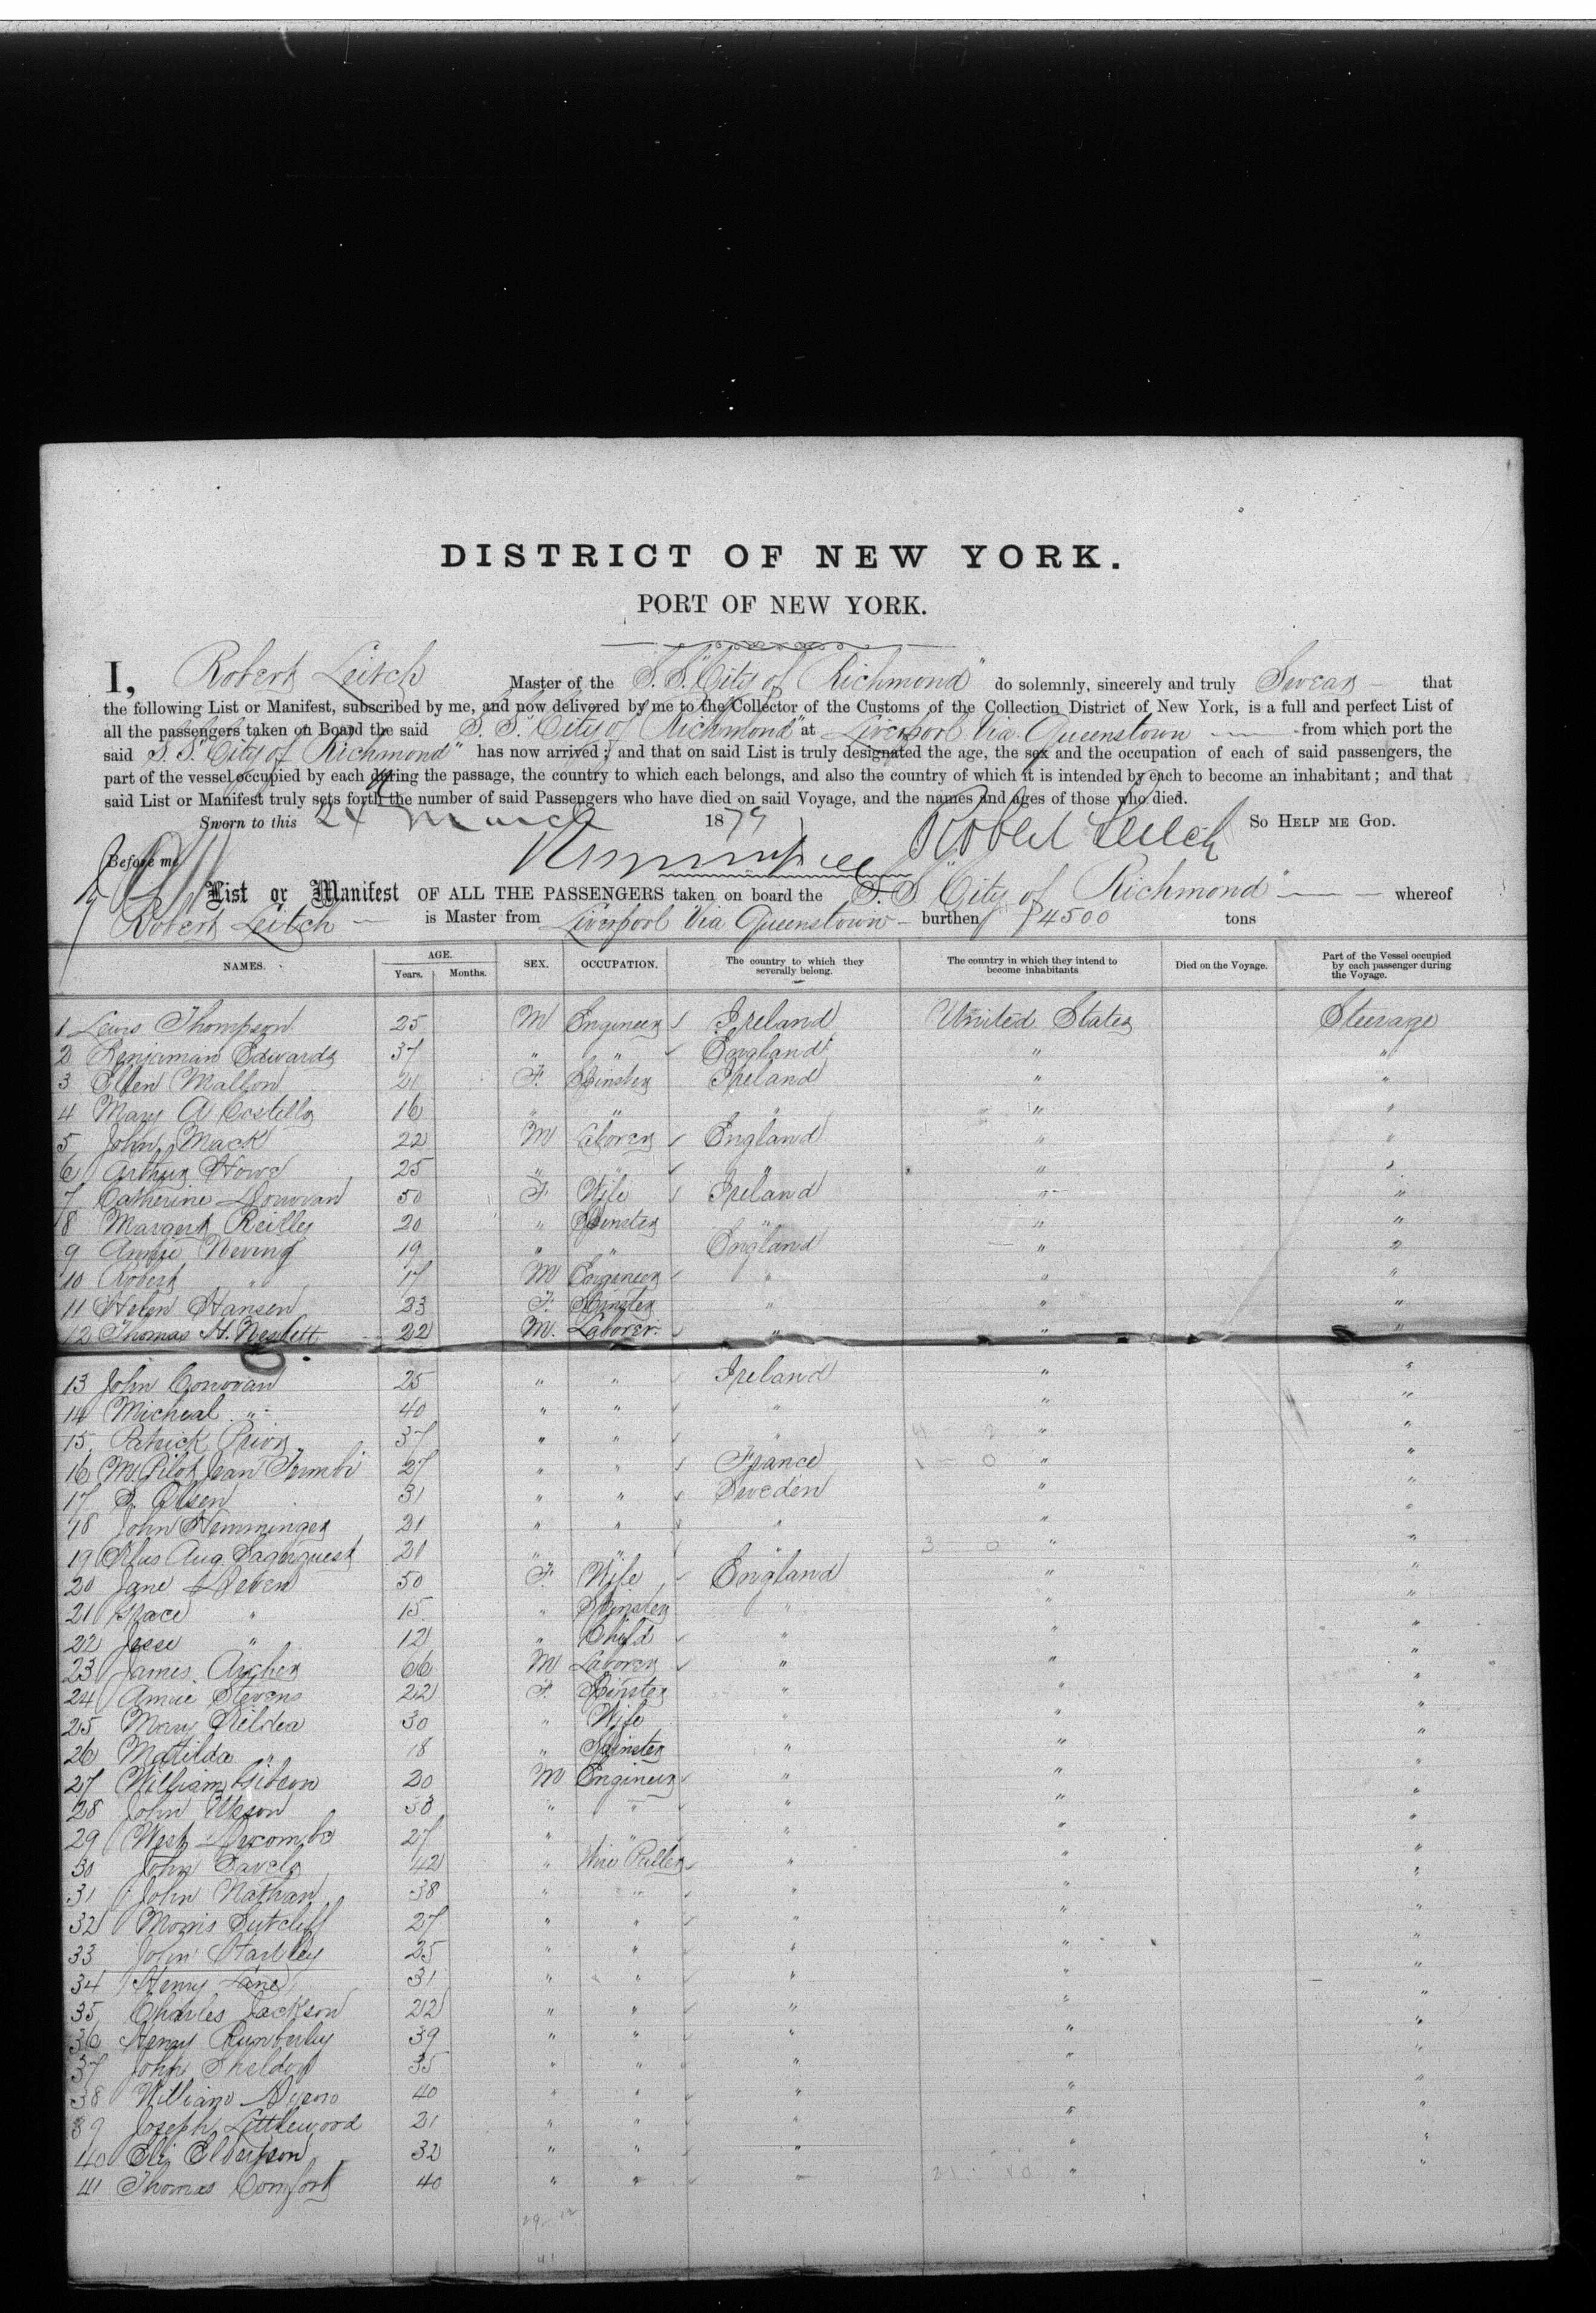 DISTRICT OF NEW YORK.
PORT OF NEW YORK.
I, Robert Leitch Master of the S. S. "City of Richmond" do solemnly, sincerely and truly Swear that
the following List or Manifest, subscribed by me, and now delivered by me to the Collector of the Customs of the Collection District of New York, is a full and perfect List of
all the passengers taken on Board the said S. S. "City of Richmond" at Liverpool Via Queenstown from which port the
said S. S. "City of Richmond" has now arrived; and that on said List is truly designated the age, the sex and the occupation of each of said passengers, the
part of the vessel occupied by each during the passage, the country to which each belongs, and also the country of which it is intended by each to become an inhabitant; and that
said List or Manifest truly sets forth the number of said Passengers who have died on said Voyage, and the names and ages of those who died.
Sworn to this 24 March 1879 Robert Leitch So HELP ME GOD.
Before me
List or Manifest OF ALL THE PASSENGERS taken on board the S. S. "City of Richmond" whereof
Robert Leitch is Master from Liverpool Via Queenstown burthen 4500 tons
NAMES. AGE. Years. Months. SEX. OCCUPATION. The country to which they severally belong. The country in which they intend to become inhabitants Died on the Voyage. Part of the Vessel occupied by each passenger during the Voyage.
1 Lewis Thompson 25 M Engineer Ireland United States Steerage
2 Benjaman Edwards 37 " " England " "
3 Ellen Mallon 21 F. Spinster Ireland " "
4 Mary A Costello 16 " " " " "
5 John Mack 22 M Laborer England " "
6 Arthur Howe 25 " " " " "
7 Catherine Donovan 50 F Wife Ireland " "
8 Margert Reilley 20 " Spinster " " "
9 Annie 19 " " England " "
10 Robert " 17 M Engineer " " "
11 Helen Hansen 23 F. Spinster " " "
12 Thomas H. Nesbett 22 M. Laborer " " "
13 John Conovan 25 " " Ireland " "
14 Micheal " 40 " " " " "
15 Patrick Prior 37 " " " " "
16 Jean 27 " " France " "
17 Olsen 31 " " Sweden " "
18 John Hemminger 21 " " " " "
19 Aug. 21 " " " " "
20 Jane 50 F. Wife England " "
21 Grace " 15 " Spinster " " "
22 Jesse " 12 " Child " " "
23 James Archer 66 M Laborer " " "
24 Annie Stevens 22 F. Spinster " " "
25 Mary 30 " Wife " " "
26 Matilda " 18 " Spinster " " "
27 William Gibson 20 M Engineer " " "
28 John 38 " " " " "
29 West 27 " " " " "
30 John 42 " Wire Puller " " "
31 John Nathan 38 " " " " "
32 Morris Sutcliff 27 " " " " "
33 John Hartley 25 " " " " "
34 Henry Lane 31 " " " " "
35 Charles Jackson 22 " " " " "
36 Henry 39 " " " " "
37 John Sheldon 35 " " " " "
38 William 40 " " " " "
39 Joseph Littlewood 21 " " " " "
40 Eli 32 " " " " "
41 Thomas Comfort 40 " " " "